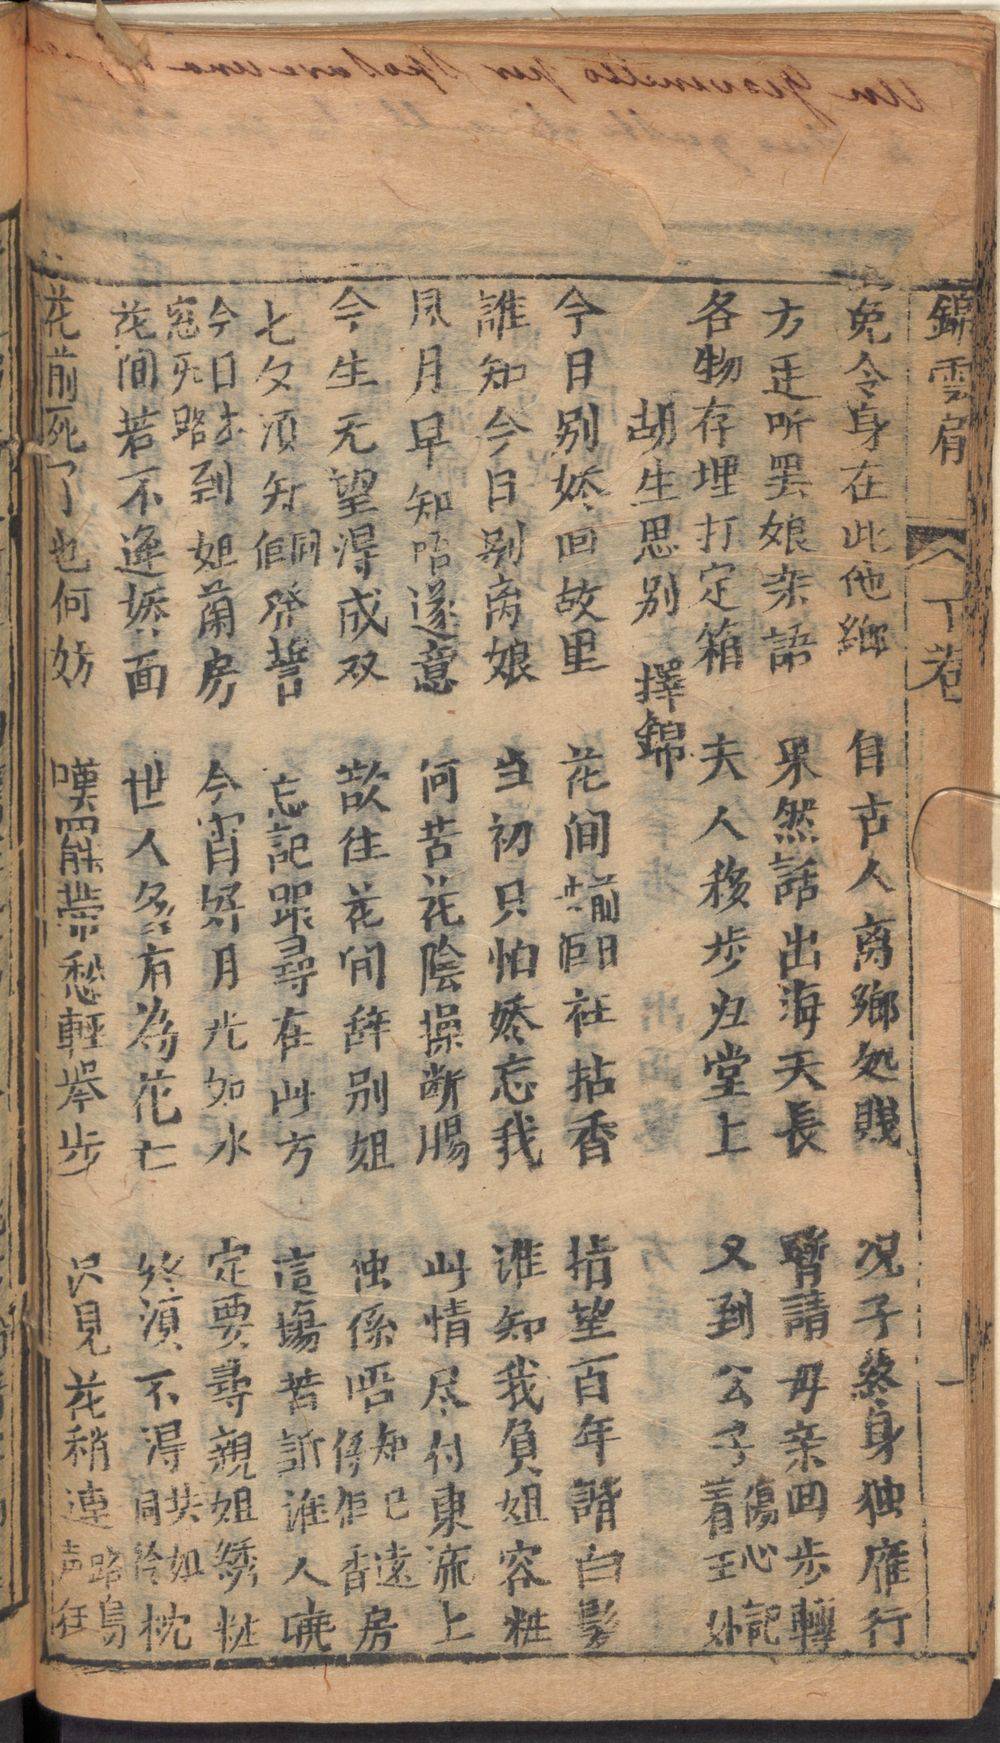 錦雲肩 下卷 一
免令身在此他鄉 自古人离鄉処賤 况子終身独雁行
方走听罢娘亲語 果然話出海天長 暫請母亲回步轉
各物存埋打定箱 夫人移步归堂上 又到公子傷心記着王外
胡生思别 擇錦
今日别娇回故里 花间前日佢社拈香 指望百年諧白髪
誰知今日别离娘 当初只怕娇忘我 谁知我負姐容粧
風月早知唔遂意 何苦花陰操断腸 此情尽付東流上
今生无望得成双 故往花间辞别姐 虫係唔知己遠佢香房
七夕須知同佢發誓 忘記跟尋在此方 這場苦訴谁人曉
今日去到姐蘭房 今宵好月光如水 定要尋親姐綉粧
冤死路花间若不逢娇面 世人多有為花亡 終須不得共姐同衾枕
花前死了也何妨 嘆罢帶愁輕举步 只見花稍連路鳥声狂